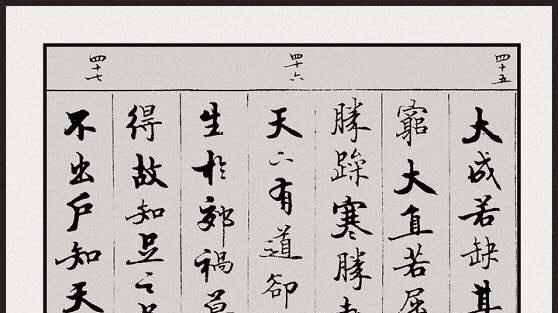 四十五
大成若缺其
窮大直若屈
勝躁寒勝
四十六
天下有道卻
生於郊禍莫
得故知足之
四十七
不出戶知天